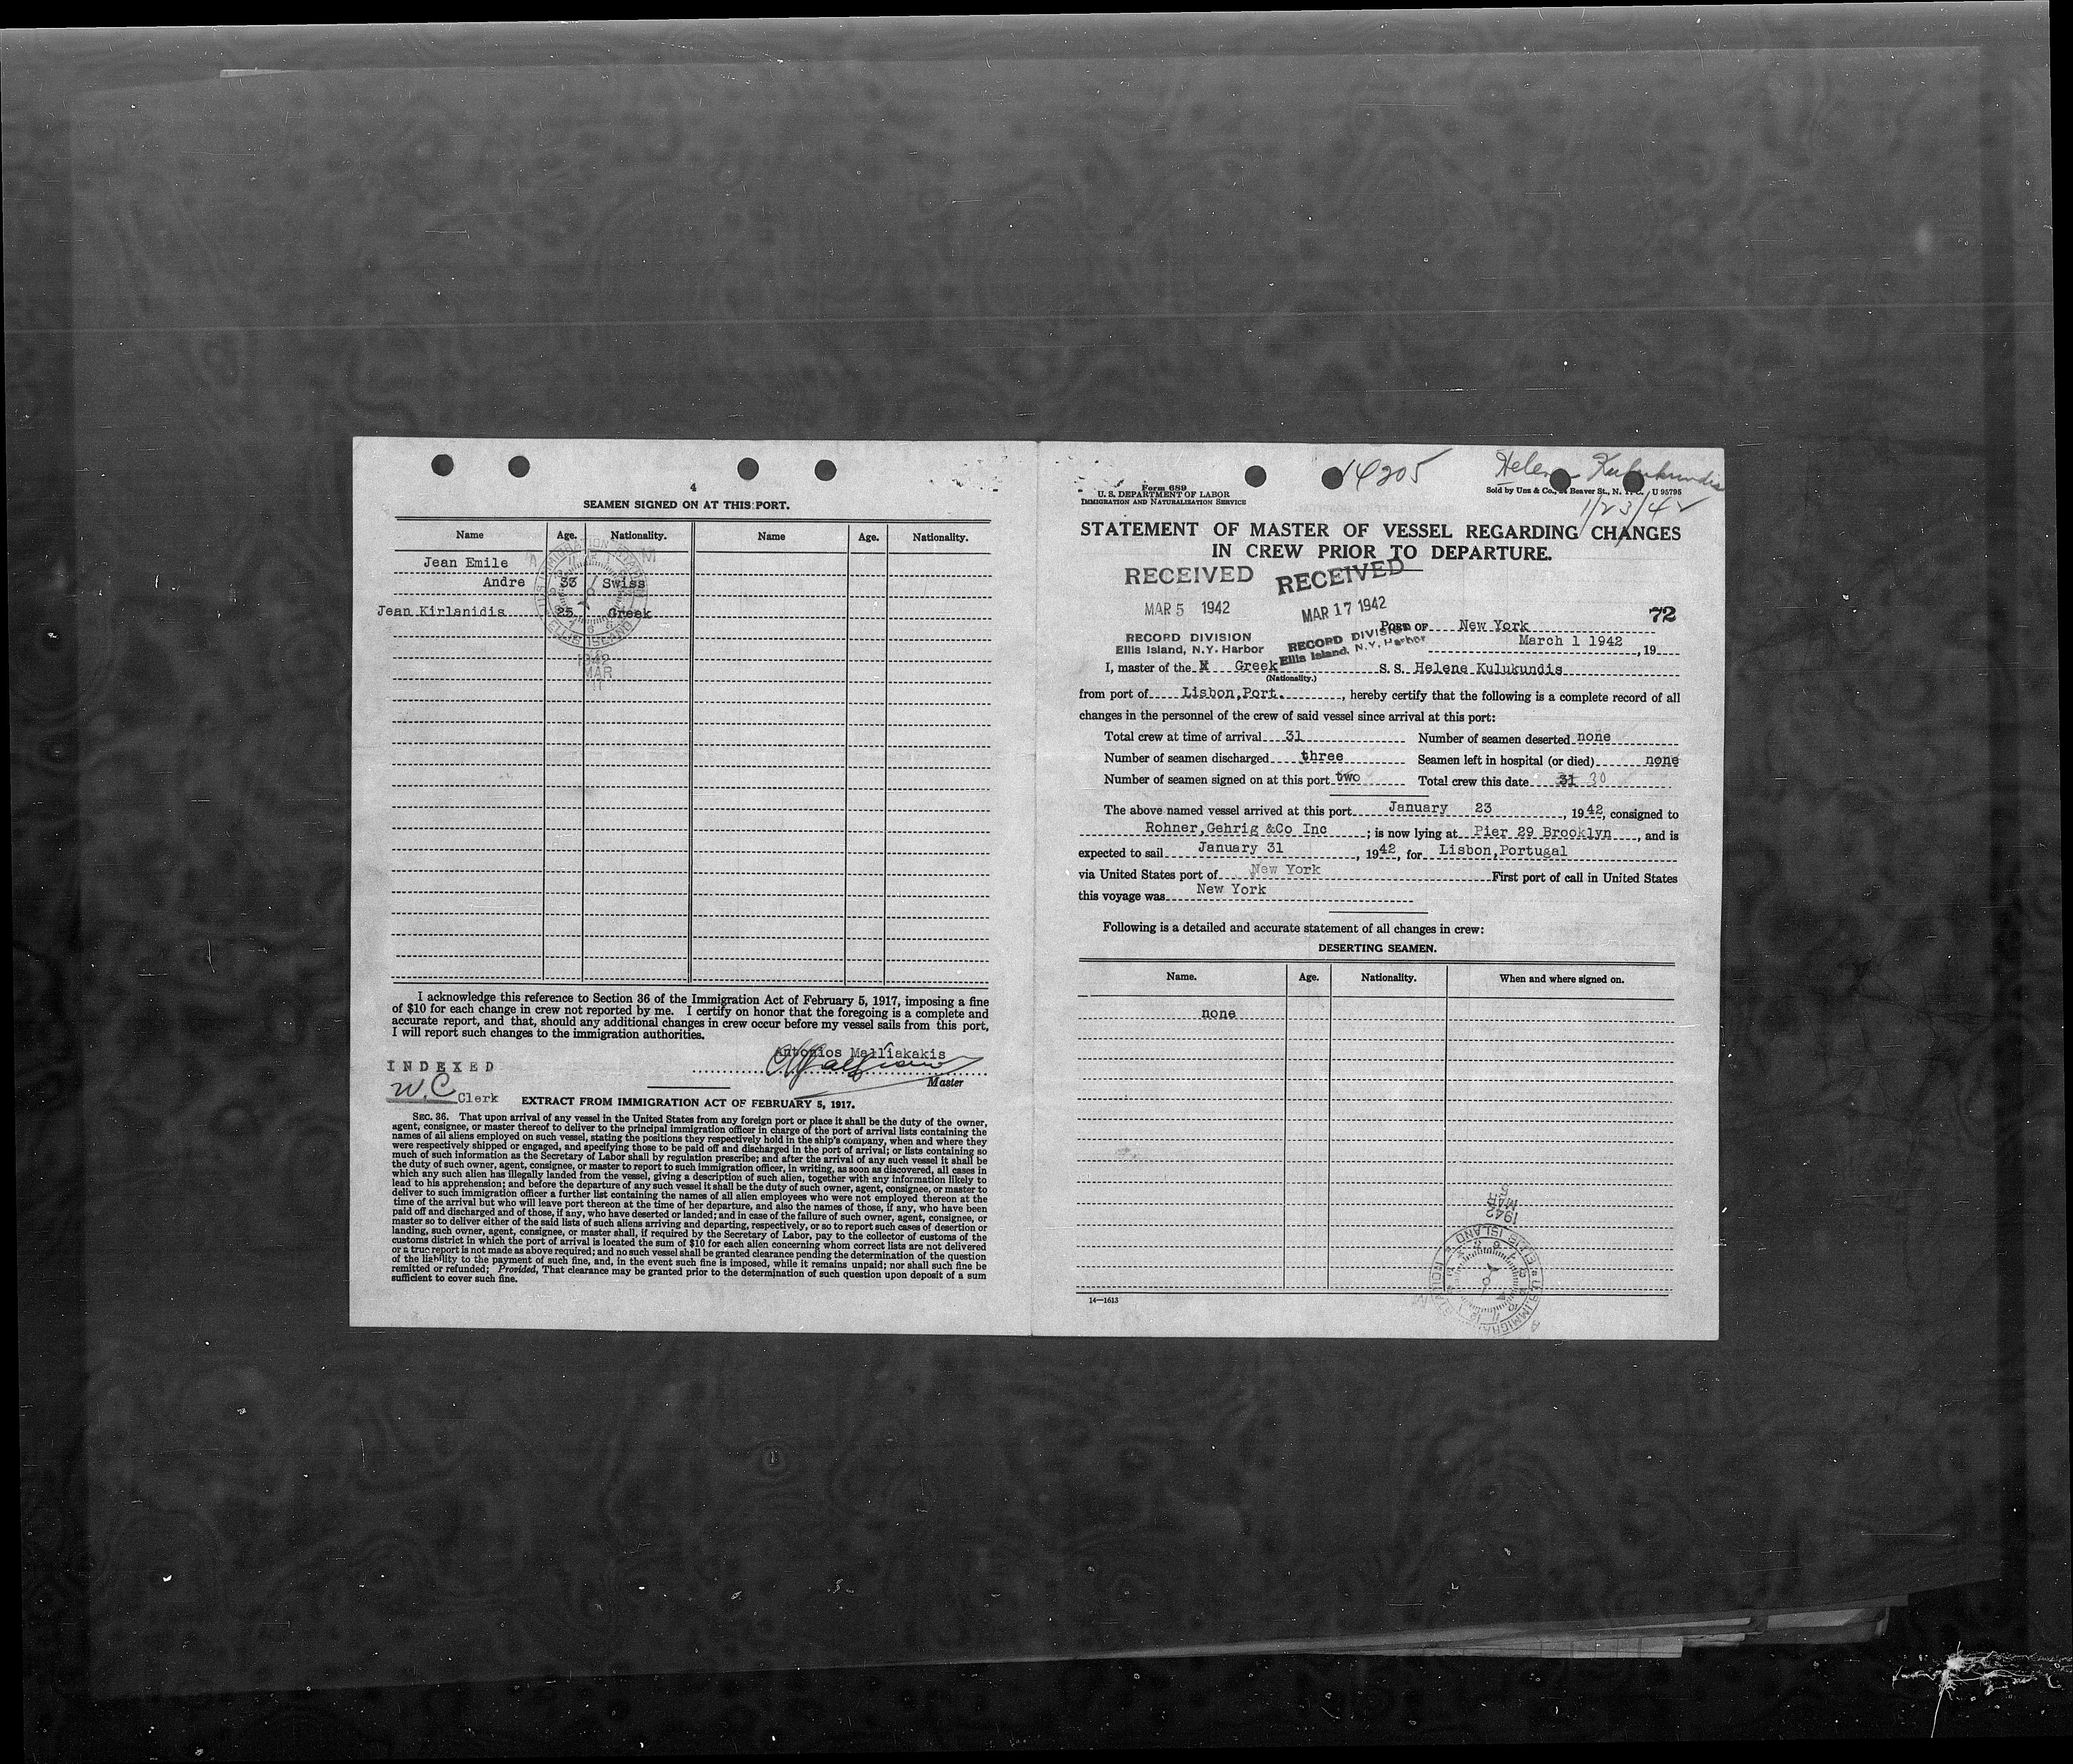 4
SEAMEN SIGNED ON AT THIS PORT.
Name Age. Nationality. Name Age. Nationality.
Jean Emile
Andre 33 Swiss
Jean Kirlanidis 25 Greek
U.S. IMMIGRATION STATION
ELLIS ISLAND
1942
MAR
11
I acknowledge this reference to Section 36 of the Immigration Act of February 5, 1917, imposing a fine
of $10 for each change in crew not reported by me. I certify on honor that the foregoing is a complete and
accurate report, and that, should any additional changes in crew occur before my vessel sails from this port,
I will report such changes to the immigration authorities.
Antonios Malliakakis
Master
INDEXED
W.C. Clerk
EXTRACT FROM IMMIGRATION ACT OF FEBRUARY 5, 1917.
SEC. 36. That upon arrival of any vessel in the United States from any foreign port or place it shall be the duty of the owner,
agent, consignee, or master thereof to deliver to the principal immigration officer in charge of the port of arrival lists containing the
names of all aliens employed on such vessel, stating the positions they respectively hold in the ship's company, when and where they
were respectively shipped or engaged, and specifying those to be paid off and discharged in the port of arrival; or lists containing so
much of such information as the Secretary of Labor shall by regulation prescribe; and after the arrival of any such vessel it shall be
the duty of such owner, agent, consignee, or master to report to such immigration officer, in writing, as soon as discovered, all cases in
which any such alien has illegally landed from the vessel, giving a description of such alien, together with any information likely to
lead to his apprehension; and before the departure of any such vessel it shall be the duty of such owner, agent, consignee, or master to
deliver to such immigration officer a further list containing the names of all alien employees who were not employed thereon at the
time of the arrival but who will leave port thereon at the time of her departure, and also the names of those, if any, who have been
paid off and discharged and of those, if any, who have deserted or landed; and in case of the failure of such owner, agent, consignee, or
master so to deliver either of the said lists of such aliens arriving and departing, respectively, or so to report such cases of desertion or
landing, such owner, agent, consignee, or master shall, if required by the Secretary of Labor, pay to the collector of customs of the
customs district in which the port of arrival is located the sum of $10 for each alien concerning whom correct lists are not delivered
or a true report is not made as above required; and no such vessel shall be granted clearance pending the determination of the question
of the liability to the payment of such fine, and, in the event such fine is imposed, while it remains unpaid; nor shall such fine be
remitted or refunded; Provided, That clearance may be granted prior to the determination of such question upon deposit of a sum
sufficient to cover such fine.
14205
Helene Kulukundis
1/23/42
Form 689
U. S. DEPARTMENT OF LABOR
IMMIGRATION AND NATURALIZATION SERVICE
Sold by Unz & Co., Beaver St., N. Y. C. U 95795
STATEMENT OF MASTER OF VESSEL REGARDING CHANGES
IN CREW PRIOR TO DEPARTURE.
RECEIVED
MAR 5 1942
RECORD DIVISION
Ellis Island, N.Y. Harbor
RECEIVED
MAR 17 1942
RECORD DIVISION
Ellis Island, N.Y. Harbor
72
PORT OF New York
March 1 1942, 19
I, master of the Greek S. S. Helene Kulukundis
(Nationality.)
from port of Lisbon,Port. , hereby certify that the following is a complete record of all
changes in the personnel of the crew of said vessel since arrival at this port:
Total crew at time of arrival 31 Number of seamen deserted none
Number of seamen discharged three Seamen left in hospital (or died) none
Number of seamen signed on at this port two Total crew this date 31 30
The above named vessel arrived at this port January 23 , 1942, consigned to
Rohner,Gehrig &Co Inc ; is now lying at Pier 29 Brooklyn , and is
expected to sail January 31 , 1942, for Lisbon,Portugal
via United States port of New York First port of call in United States
this voyage was New York
Following is a detailed and accurate statement of all changes in crew:
DESERTING SEAMEN.
Name. Age. Nationality. When and where signed on.
none
MAR
1942
ELLIS ISLAND
14—1613